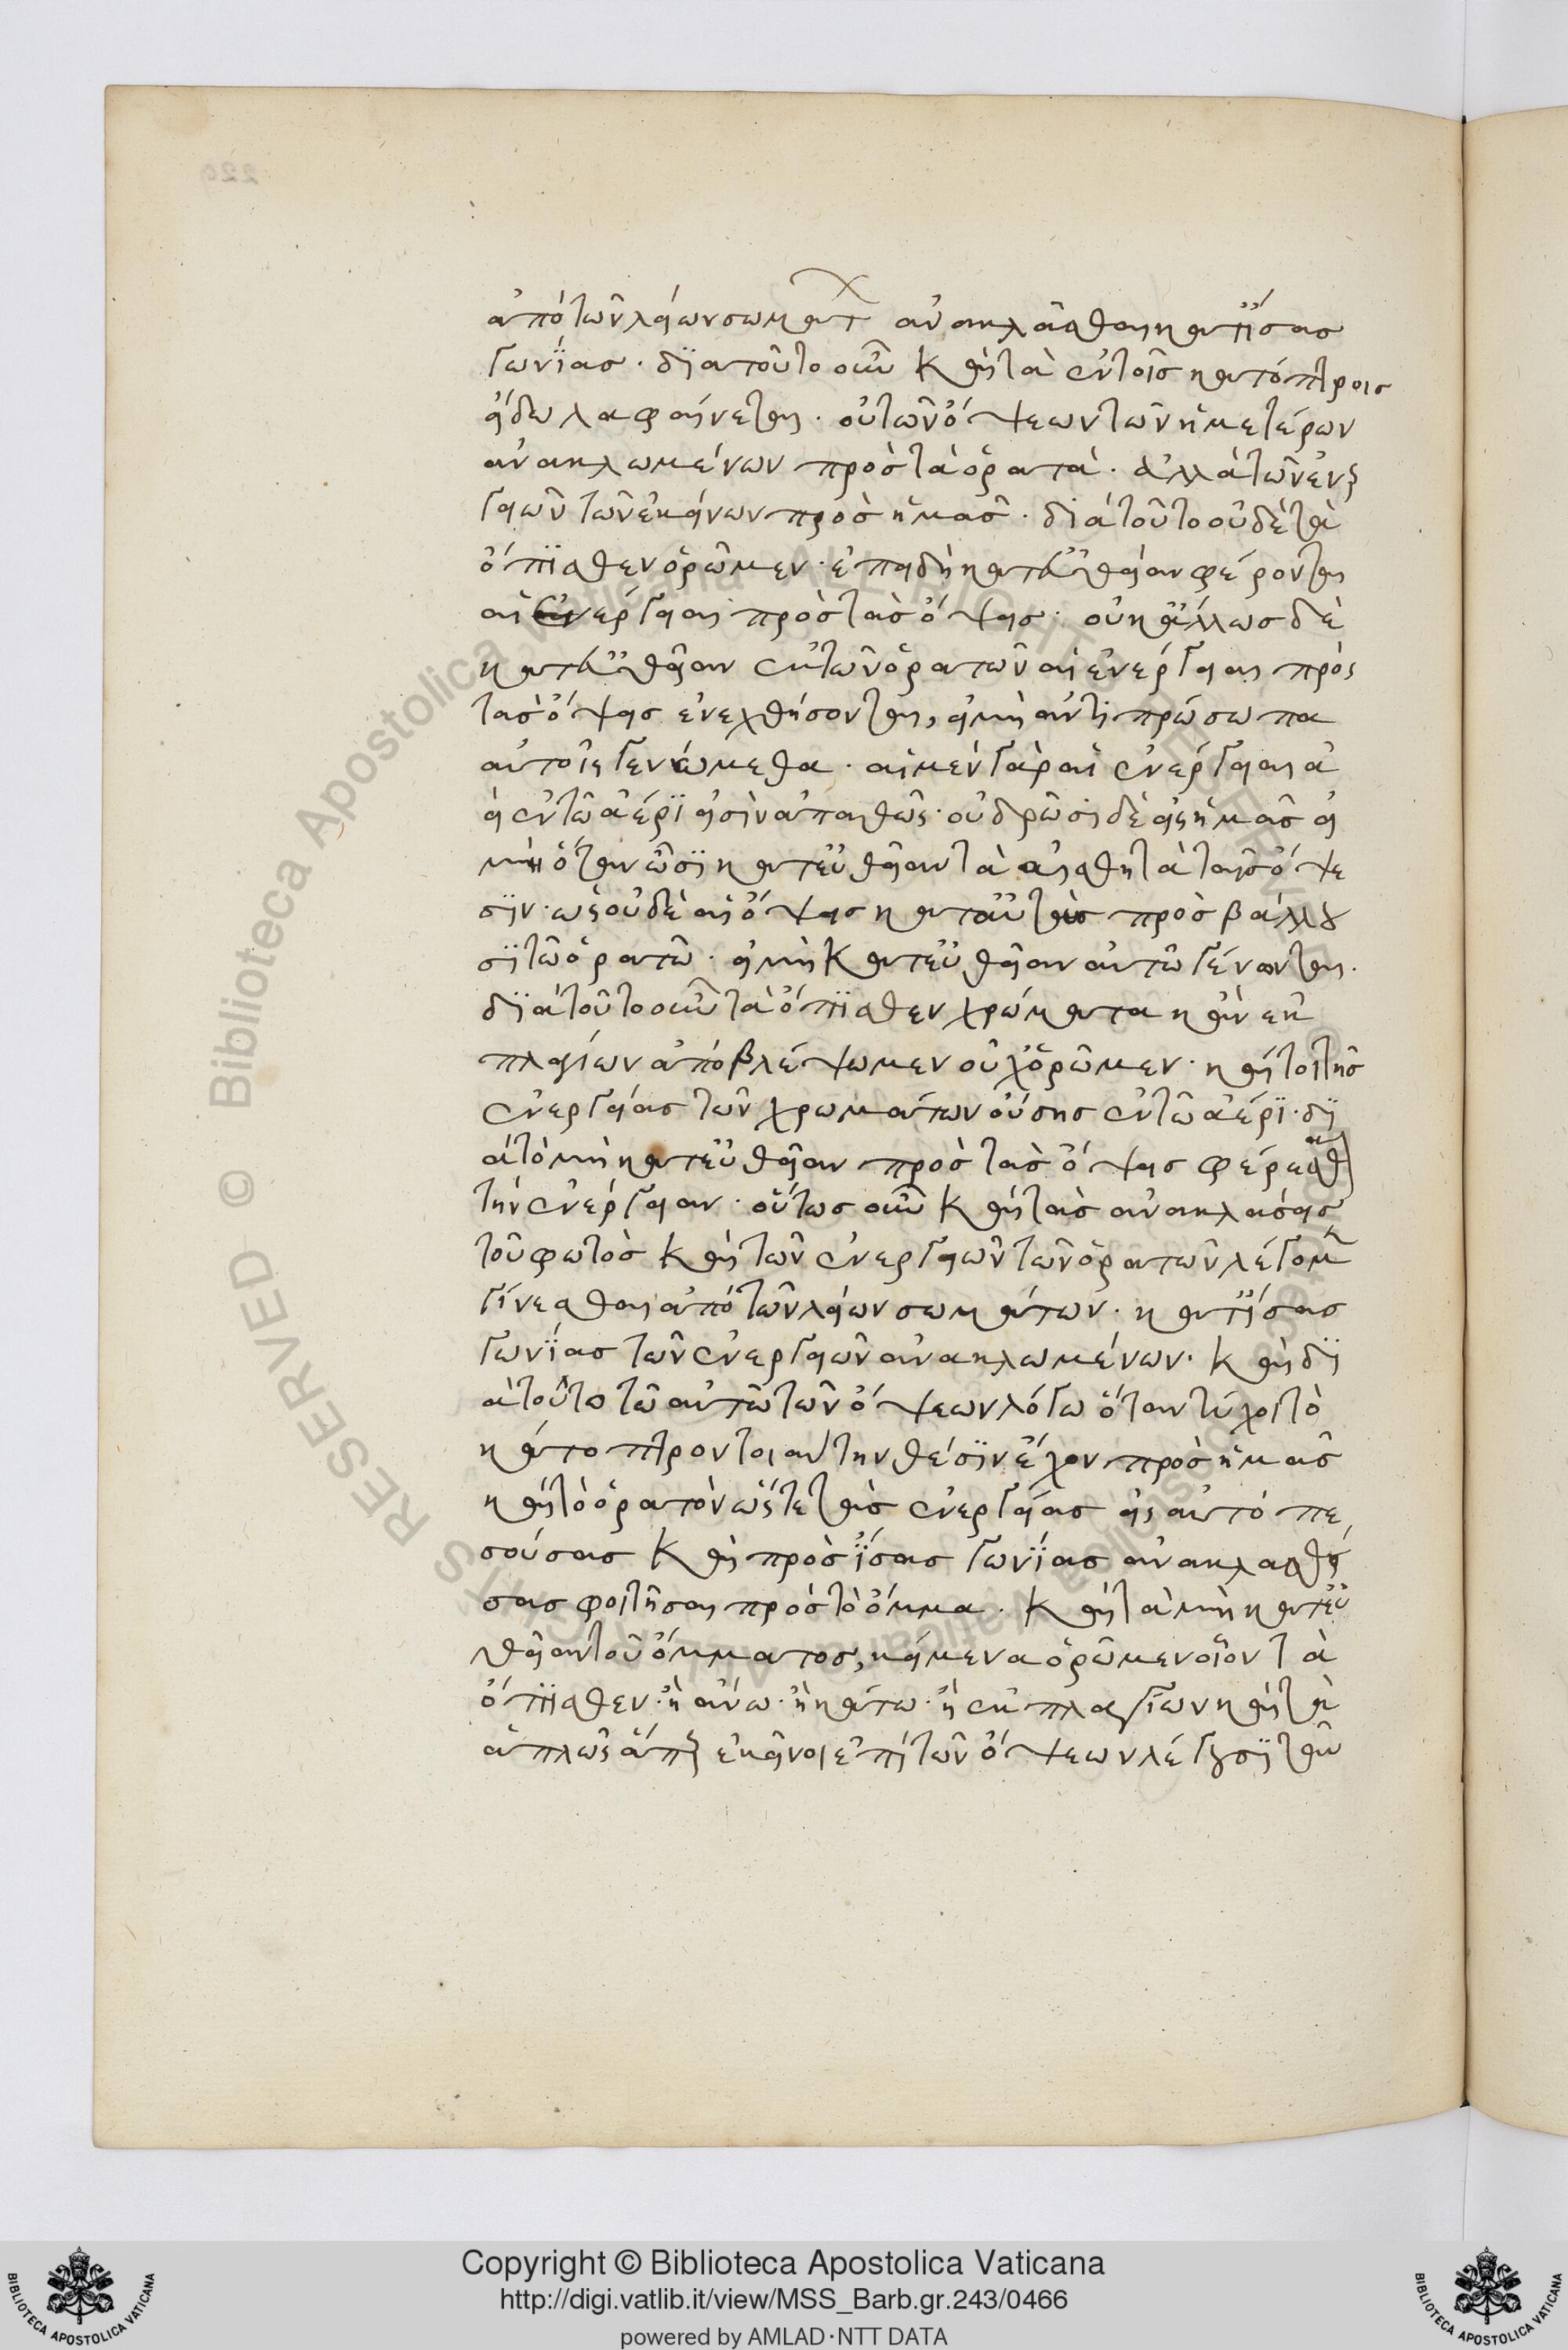 ἀπὸ τῶν λείων σωμάτ ἀνακλᾶσθαι κατ' ἴσας
γωνίας · διὰ τοῦτο οὖν καὶ τὰ ἐν τοῖς κατόπτροις
εἴδωλα φαίνεται · οὐ τῶν ὄψεων τῶν ἡμετέρων
ἀνακλωμένων πρὸς τὰ ὁρατά · ἀλλὰ τῶν ἐνερ
γειῶν τῶν ἐκείνων πρὸς ἡμᾶς · διὰ τοῦτο οὐδὲ τὰ
ὄπισθεν ὁρῶμεν · ἐπειδὴ κατ' εὐθεῖαν φέρονται
αἱ ἐνέργειαι πρὸς τὰς ὄψεις · οὐκ ἄλλως δὲ
κατ' εὐθεῖαν ἐκ τῶν ὁρατῶν αἱ ἐνέργειαι πρὸς
τὰς ὄψεις ἐνεχθήσονται, εἰ μὴ ἀντιπρόσωπα
αὐτοῖς γενώμεθα · αἱ μὲν γὰρ αἱ ἐνέργειαι ἀ
εὶ ἐν τῶ ἀέρι εἰσὶν ἀπαθῶς · οὐ δρῶσι δὲ εἰς ἡμᾶς εἰ
μὴ ὅταν ὦσι κατ' εὐθεῖαν τὰ αἰσθητὰ ταῖς ὄψε
σιν · ὡς οὐδὲ αἱ ὄψεις κατ' αὐτοὺς προσβάλλου
σι τῶ ὁρατῶ · εἰ μὴ κατ' εὐθεῖαν αὐτῶ γένωνται ·
διὰ τοῦτο οὖν τὰ ὄπισθεν χρώματα κἂν ἐκ
πλαγίων ἀποβλέψωμεν οὐχ ὁρῶμεν · καίτοι τῆς
ἐνεργείας τῶν χρωμάτων οὔσης ἐν τῶ ἀέρι · δι
ὰ τὸ μὴ κατ' εὐθεῖαν πρὸς τὰς ὄψεις φέρεσθαι
τὴν ἐνέργειαν · οὕτως οὖν καὶ τὰς ἀνακλάσεις
τοῦ φωτὸς καὶ τῶν ἐνεργειῶν τῶν ὁρατῶν λέγομ
γίνεσθαι ἀπὸ τῶν λείων σωμάτων · κατ' ἴσας
γωνίας τῶν ἐνεργειῶν ἀνακλωμένων · καὶ δι
ὰ τοῦτο τῶ αὐτῶ τῶν ὄψεων λόγω ὅταν τύχοι τὸ
κάτοπτρον τοιαύτην θέσιν ἔχον πρὸς ἡμᾶς
καὶ τὸ ὁρατὸν ὥστε τὰς ἐνεργείας εἰς αὐτὸ πε
σούσας καὶ πρὸς ἴσας γωνίας ἀνακλασθεί
σας φοιτῆσαι πρὸς τὸ ὄμμα · καὶ τὰ μὴ κατ' εὐ
θεῖαν τοῦ ὄμματος, κείμενα ὁρῶμεν οἷον τὰ
ὄπισθεν · ἢ ἄνω · ἢ κάτω · ἢ ἐκ πλαγίων καὶ τὰ
ἁπλῶς ἅπερ ἐκεῖνοι ἐπὶ τῶν ὄψεων λέγουσι ταῦ
Copyright © Biblioteca Apostolica Vaticana
http://digi.vatlib.it/view/MSS_Barb.gr.243/0466
powered by AMLAD·NTT DATA